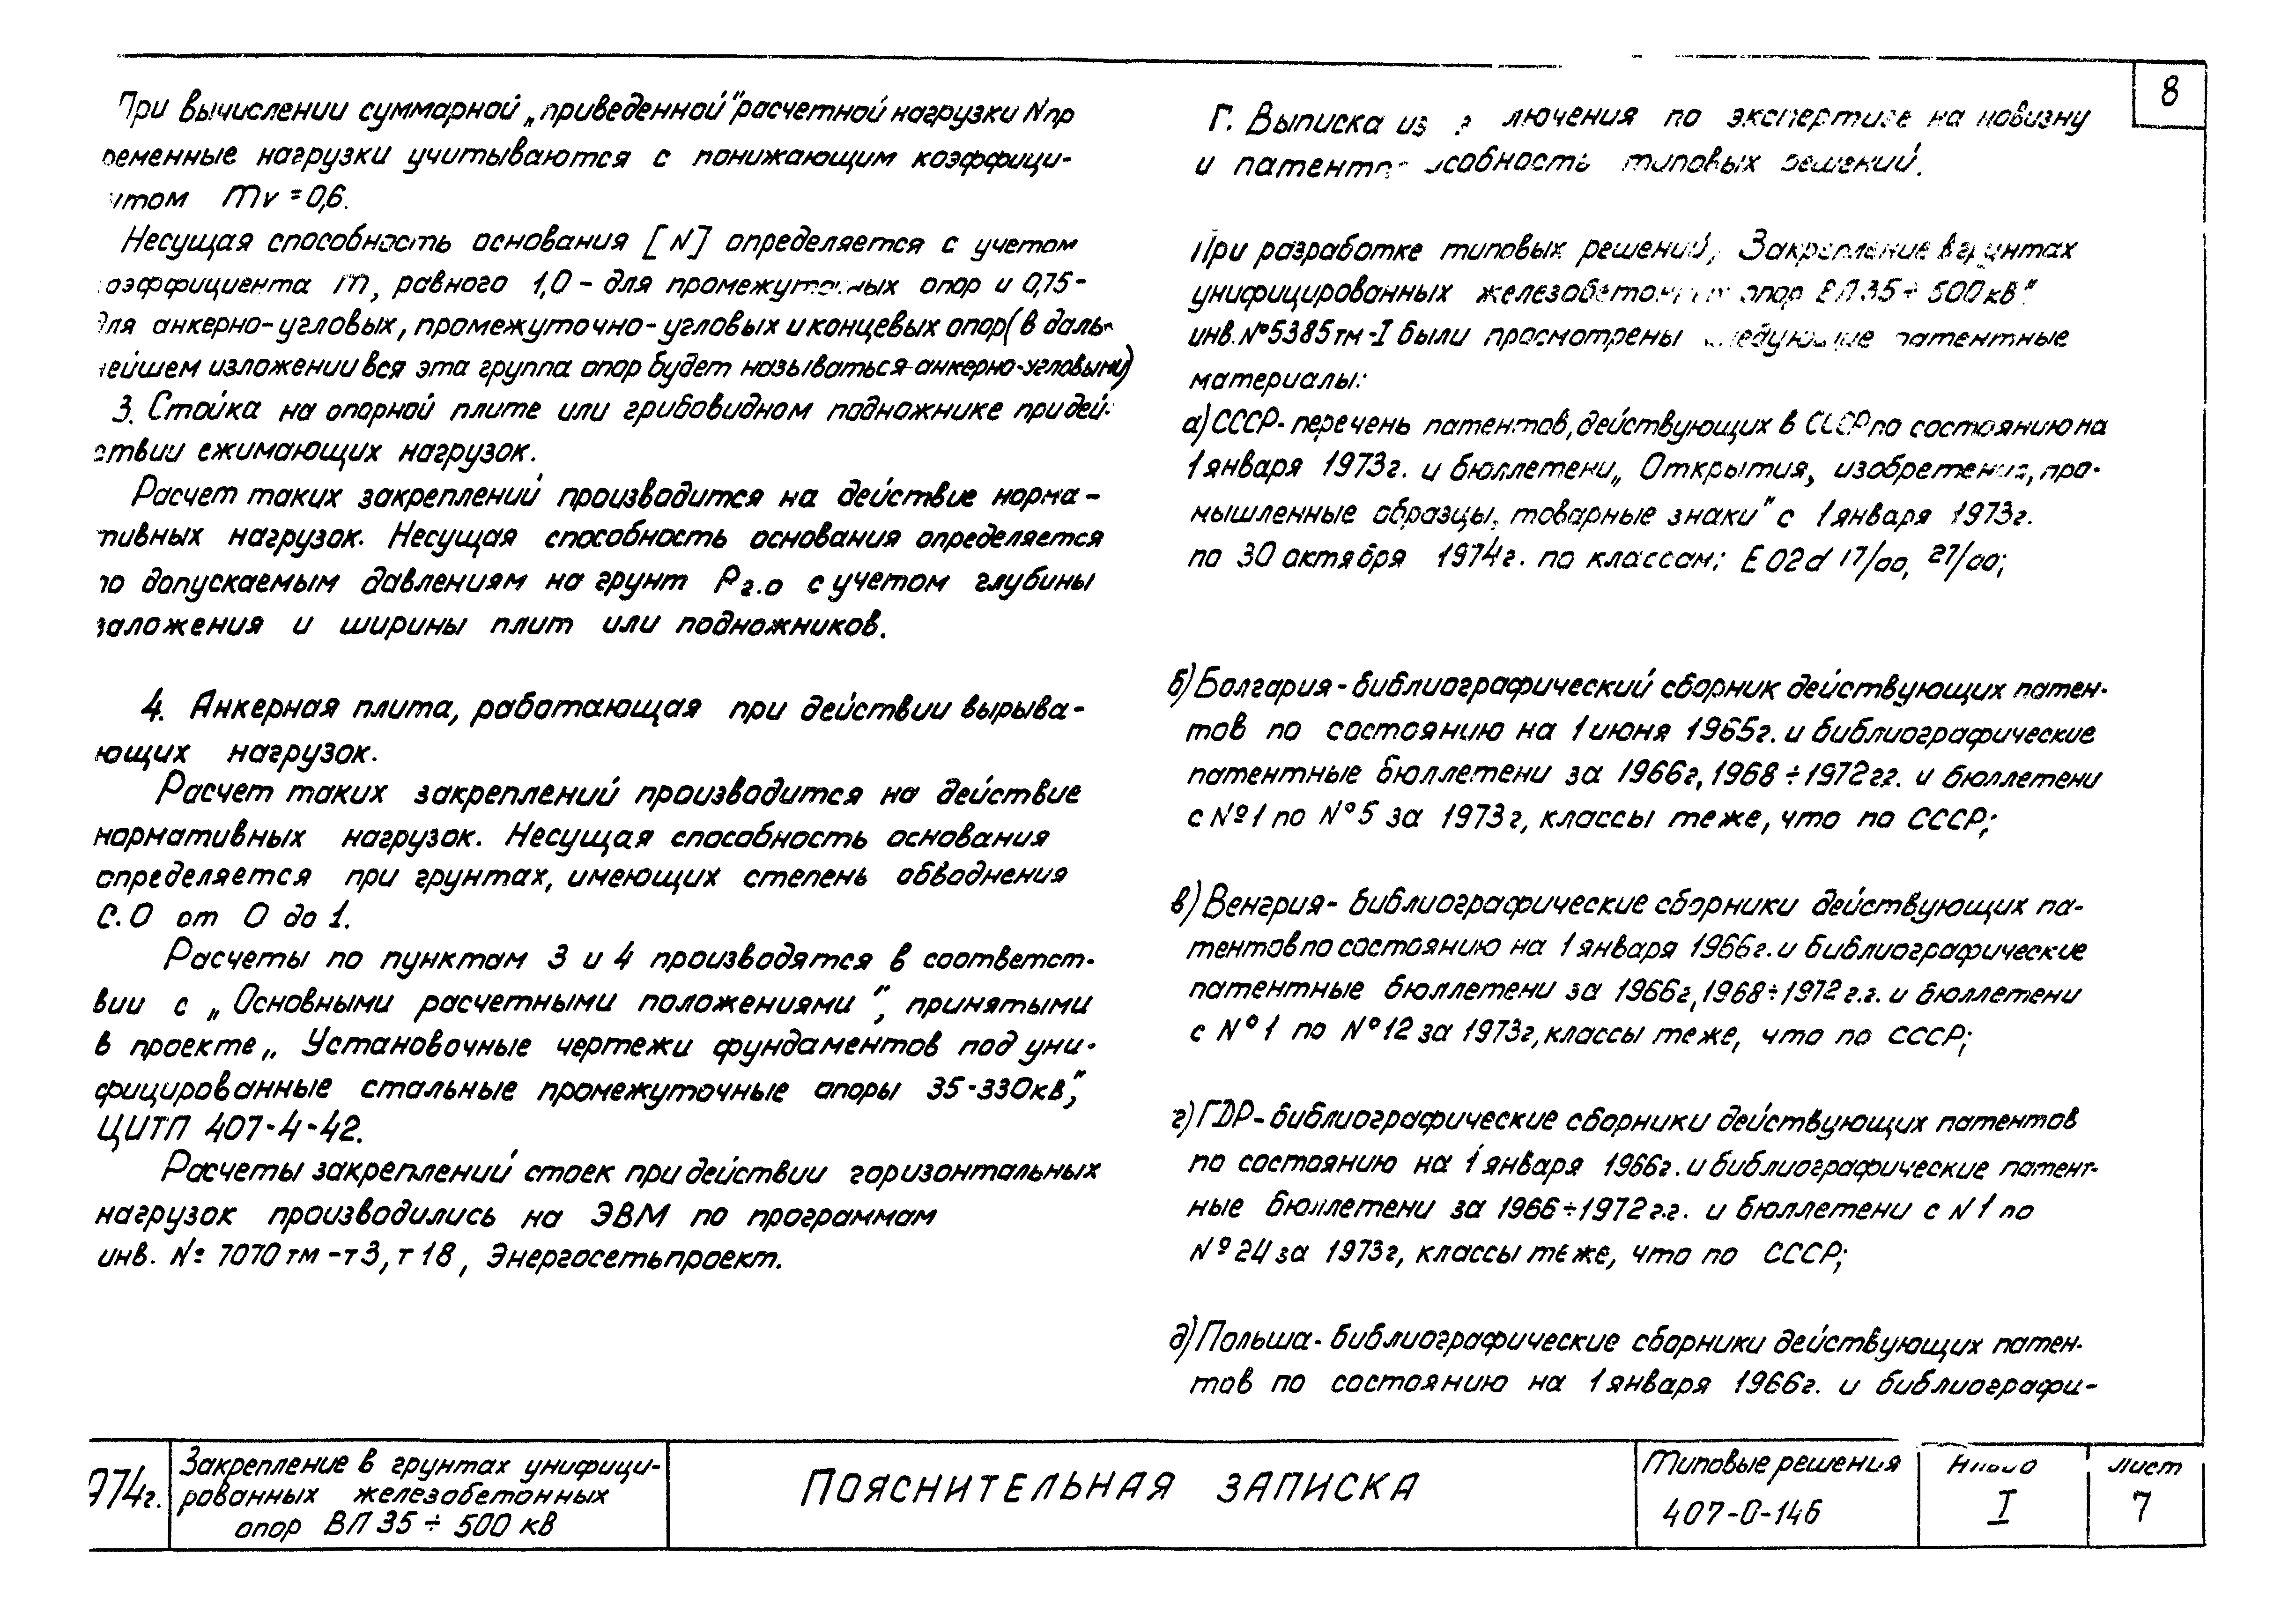 8
При вычислении суммарной „приведенной" расчетной нагрузки Nпр
ременные нагрузки учитываются с понижающим коэффици-
нтом mv = 0,6.
Несущая способность основания [N] определяется с учетом
оэффициента m, равного 1,0 - для промежуточных опор и 0,75-
для анкерно-угловых, промежуточно-угловых и концевых опор (в даль-
нейшем изложении вся эта группа опор будет называться анкерно-угловыми)
3. Стойка на опорной плите или грибовидном подножнике при дей-
ствии сжимающих нагрузок.
Расчет таких закреплений производится на действие норма-
тивных нагрузок. Несущая способность основания определяется
по допускаемым давлениям на грунт Рг.о с учетом глубины
заложения и ширины плит или подножников.
4. Анкерная плита, работающая при действии вырыва-
ющих нагрузок.
Расчет таких закреплений производится на действие
нормативных нагрузок. Несущая способность основания
определяется при грунтах, имеющих степень обводнения
С.О от 0 до 1.
Расчеты по пунктам 3 и 4 производятся в соответст-
вии с „Основными расчетными положениями", принятыми
в проекте „Установочные чертежи фундаментов под уни-
фицированные стальные промежуточные опоры 35-330кв",
ЦИТП 407-4-42.
Расчеты закреплений стоек при действии горизонтальных
нагрузок производились на ЭВМ по программам
инв. № 7070тм-т3, т18, Энергосетьпроект.
Г. Выписка из лючения по экспертизе на новизну
и патентоспособность типовых решений.
При разработке типовых решений „Закрепление в грунтах
унифицированных железобетонных опор ВЛ 35÷500кв"
инв. №5385тм-I были просмотрены следующие патентные
материалы:
а) СССР- перечень патентов, действующих в СССР по состоянию на
1 января 1973г. и бюллетени „Открытия, изобретения, про-
мышленные образцы, товарные знаки" с 1 января 1973г.
по 30 октября 1974г. по классам: Е02d 17/00, 27/00;
б) Болгария - библиографический сборник действующих патен-
тов по состоянию на 1 июня 1965г. и библиографические
патентные бюллетени за 1966г, 1968÷1972гг. и бюллетени
с №1 по №5 за 1973г, классы те же, что по СССР;
в) Венгрия- библиографические сборники действующих па-
тентов по состоянию на 1 января 1966г. и библиографические
патентные бюллетени за 1966г, 1968÷1972г.г. и бюллетени
с №1 по №12 за 1973г, классы те же, что по СССР;
г) ГДР- библиографические сборники действующих патентов
по состоянию на 1 января 1966г. и библиографические патент-
ные бюллетени за 1966÷1972г.г. и бюллетени с N1 по
№24 за 1973г, классы те же, что по СССР;
д) Польша- библиографические сборники действующих патен-
тов по состоянию на 1 января 1966г. и библиографи-
974г.
Закрепление в грунтах унифици-
рованных железобетонных
опор ВЛ 35÷500 кв
ПОЯСНИТЕЛЬНАЯ ЗАПИСКА
Типовые решения
407-0-146
I
Лист
7